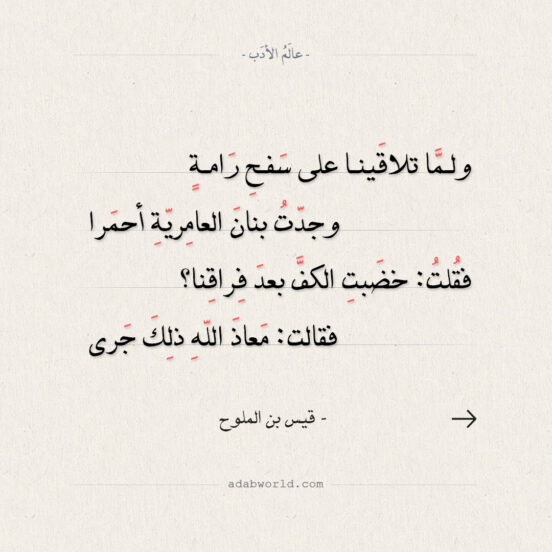 - عالَمُ الأدَب -
ولـمَّا تلاقَينـا على سَفحِ رَامـةٍ
وجدّتُ بنانَ العامِريّةِ أحمَرا
فقُلتُ: خضَبتِ الكفَّ بعدَ فِراقِنا؟
فقالت: مَعاذَ اللّهِ ذلِكَ جَرى
- قيس بن الملوح
adabworld.com